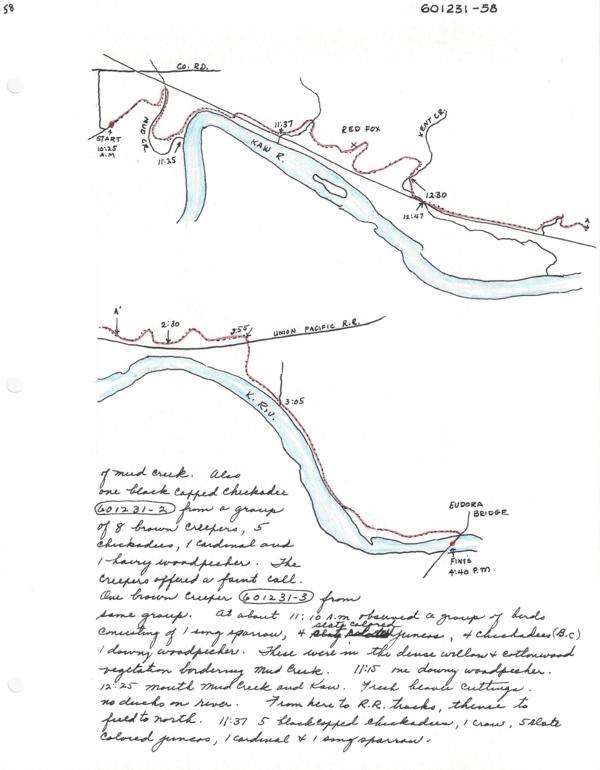 58
601231-58
CO. RD.
START
10:25
A.M
MUD CR.
11:25
KAW R.
11:37
RED FOX
KENT CR.
12:30
12:47
A
A'
2:30
2:55
UNION PACIFIC R.R.
K. RIV.
3:05
EUDORA
BRIDGE
FINIS
4:40 P.M.
of mud creek. Also
one black capped chickadee
601231-2 from a group
of 8 brown creepers, 5
chickadees, 1 cardinal and
1 hairy woodpecker. The
creepers offered a faint call.
One brown creeper 601231-3 from
same group. At about 11:10 A.m observed a group of birds
consisting of 1 song sparrow, 4 slate colored juncos, 4 chickadees (B.c)
1 downy woodpecker. These were in the dense willow & cottonwood
vegetation bordering Mud Creek. 11:15 one downy woodpecker.
12:25 mouth Mud Creek and Kaw. Fresh beaver cuttings.
no ducks on river. From here to R.R. tracks, thence to
field to north. 11:37 5 black capped chickadees, 1 crow, 5 slate
colored juncos, 1 cardinal & 1 song sparrow.